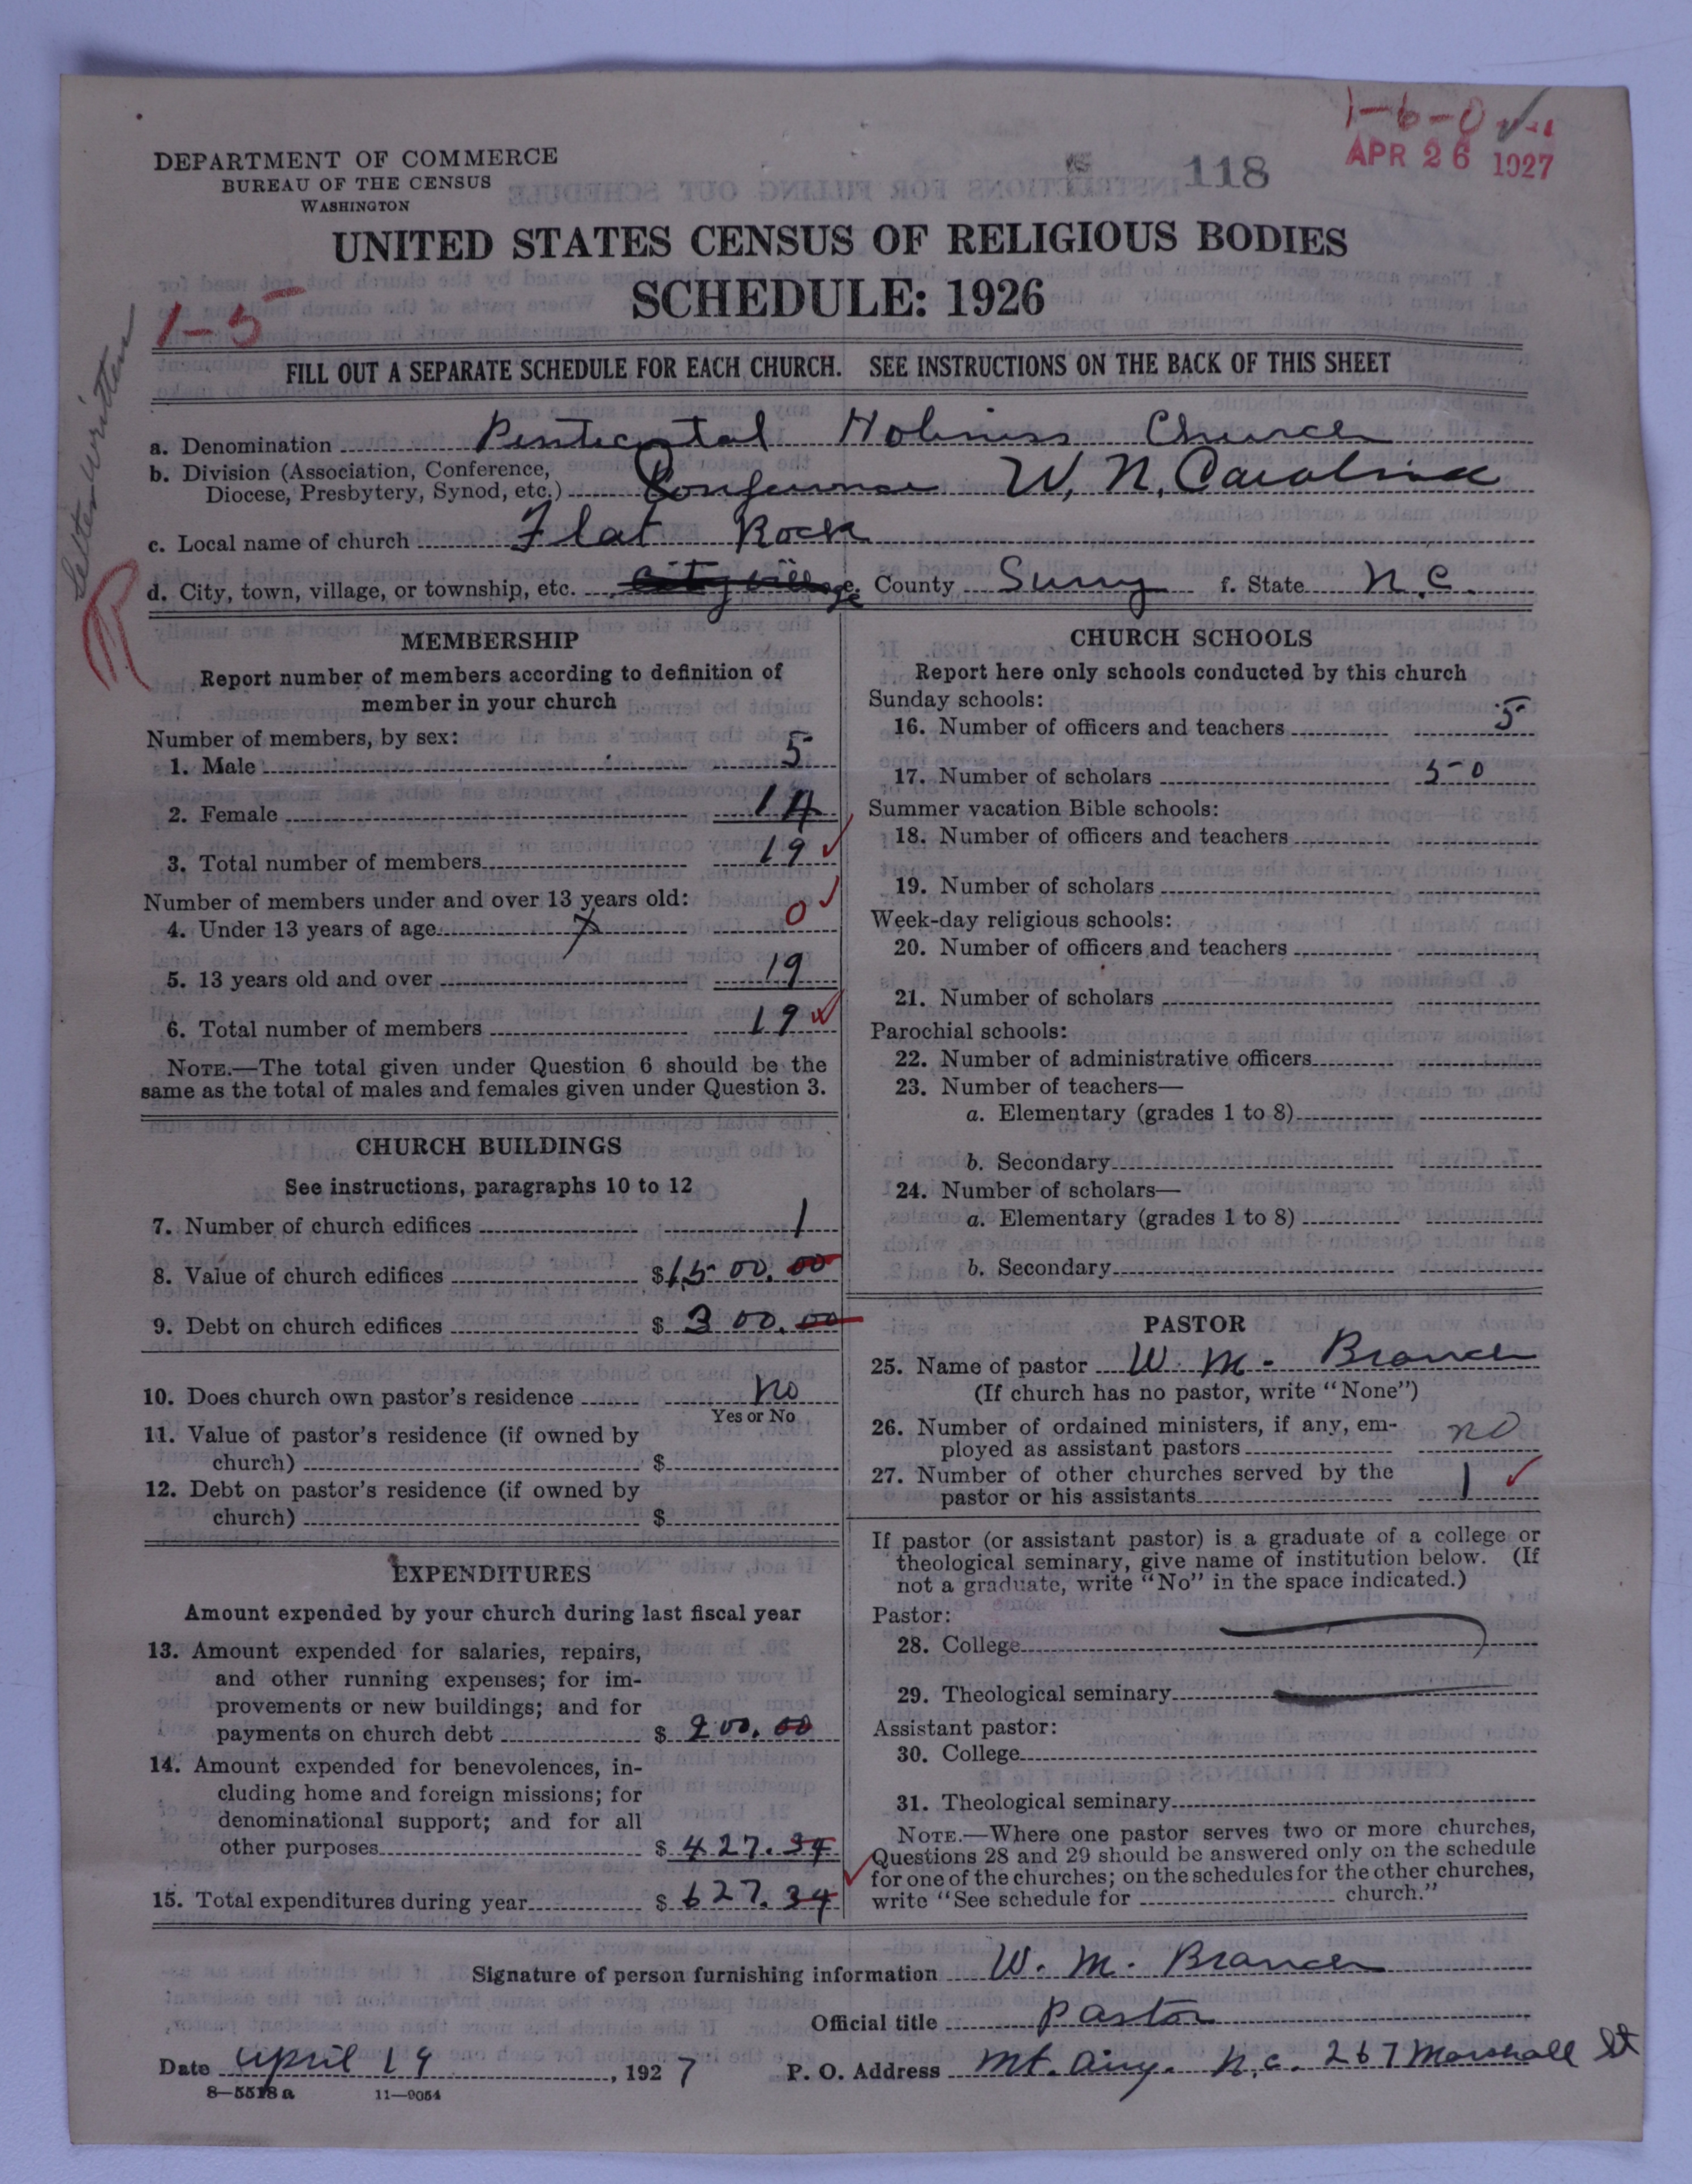 1-6-0
APR 26 1927
118
DEPARTMENT OF COMMERCE
BUREAU OF THE CENSUS
WASHINGTON
UNITED STATES CENSUS OF RELIGIOUS BODIES
SCHEDULE: 1926
1-5
Letter written
R
FILL OUT A SEPARATE SCHEDULE FOR EACH CHURCH. SEE INSTRUCTIONS ON THE BACK OF THIS SHEET
a. Denomination Pentecostal Holiness Church
b. Division (Association, Conference,
Diocese, Presbytery, Synod, etc.) Conference W. N. Carolina
c. Local name of church Flat Rock
d. City, town, village, or township, etc. City village e. County Surry f. State N.C.
MEMBERSHIP
Report number of members according to definition of
member in your church
Number of members, by sex:
1. Male 5
2. Female 14
3. Total number of members 19
Number of members under and over 13 years old:
4. Under 13 years of age x 0
5. 13 years old and over 19
6. Total number of members 19
NOTE.—The total given under Question 6 should be the
same as the total of males and females given under Question 3.
CHURCH BUILDINGS
See instructions, paragraphs 10 to 12
7. Number of church edifices 1
8. Value of church edifices $1500.00
9. Debt on church edifices $300.00
10. Does church own pastor's residence No
Yes or No
11. Value of pastor's residence (if owned by
church) $
12. Debt on pastor's residence (if owned by
church) $
EXPENDITURES
Amount expended by your church during last fiscal year
13. Amount expended for salaries, repairs,
and other running expenses; for im-
provements or new buildings; and for
payments on church debt $200.00
14. Amount expended for benevolences, in-
cluding home and foreign missions; for
denominational support; and for all
other purposes $427.34
15. Total expenditures during year $627.34
CHURCH SCHOOLS
Report here only schools conducted by this church
Sunday schools:
16. Number of officers and teachers 5
17. Number of scholars 50
Summer vacation Bible schools:
18. Number of officers and teachers
19. Number of scholars
Week-day religious schools:
20. Number of officers and teachers
21. Number of scholars
Parochial schools:
22. Number of administrative officers
23. Number of teachers—
a. Elementary (grades 1 to 8)
b. Secondary
24. Number of scholars—
a. Elementary (grades 1 to 8)
b. Secondary
PASTOR
25. Name of pastor W. M. Branch
(If church has no pastor, write "None")
26. Number of ordained ministers, if any, em-
ployed as assistant pastors no
27. Number of other churches served by the
pastor or his assistants 1
If pastor (or assistant pastor) is a graduate of a college or
theological seminary, give name of institution below. (If
not a graduate, write "No" in the space indicated.)
Pastor:
28. College
29. Theological seminary
Assistant pastor:
30. College
31. Theological seminary
NOTE.—Where one pastor serves two or more churches,
Questions 28 and 29 should be answered only on the schedule
for one of the churches; on the schedules for the other churches,
write "See schedule for church."
Signature of person furnishing information W. M. Branch
Official title Pastor
Date April 19, 1927 P. O. Address Mt. Airy. N.C. 267 Marshall St
8—5518a 11—9054